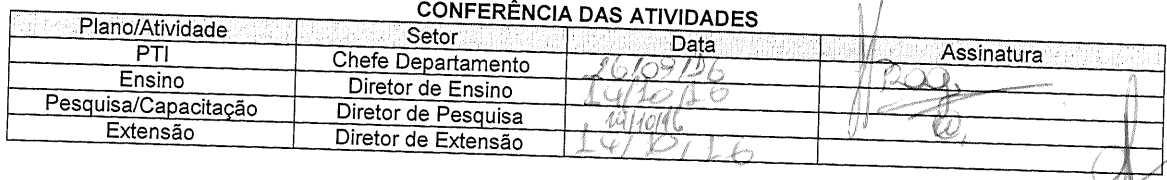 CONFERÊNCIA DAS ATIVIDADES
Plano/Atividade Setor Data Assinatura
PTI Chefe Departamento 26/09/16
Ensino Diretor de Ensino 14/10/16
Pesquisa/Capacitação Diretor de Pesquisa 14/10/16
Extensão Diretor de Extensão 14/10/16